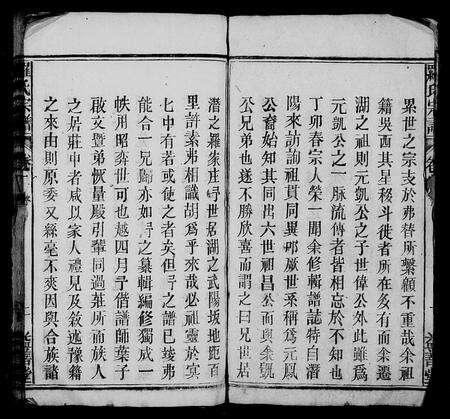 累世之宗支於弗替所繫顧不重哉余祖
籍吳西其星移斗徙者所在多有而余遷
湖之祖則元凱公之子世偉公外此雖爲
元凱公之一脈流傳者皆相忘於不知也
丁卯春宗人榮一聞余修輯譜誌特自潛
陽來訪詢祖貫同異即厥世系爲元凱
公裔始知其同出六世祖昌公而與余
公兄弟也遂不勝欣喜而謂之曰兄世居
潛之羅家庄世居湖之武陽坂地距百
里許素弗相識胡爲乎來哉必祖靈於冥
七中有若或使之者矣但之譜已竣弗
能合一兄歸亦如之纂輯編修獨成一
帙用昭奕世可也越四月予偕譜師葉子
啟文暨弟恢量殿引輩同過莊所而族人
之居莊中者咸以家人禮見及敘述豫籍
之來由則原委又絲毫不爽因與合族諸
羅氏宗譜
卷